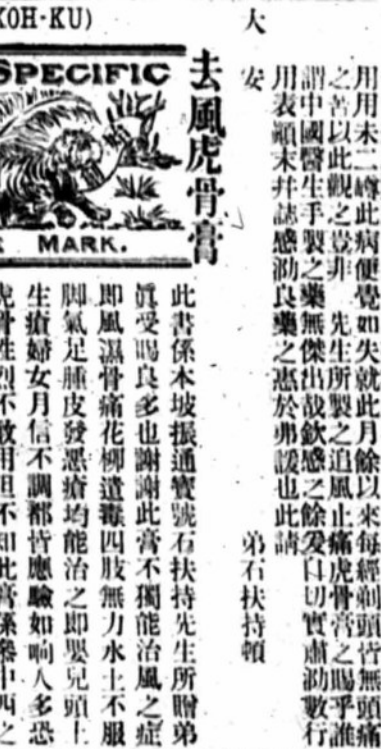 用用未二罇此病便覺如失就此月餘以來每經剃頭皆無頭痛
之苦以此觀之豈非　先生所製之追風止痛虎骨膏之賜乎誰
謂中國醫生手製之藥無傑出哉欽感之餘爰切實肅泐數行
用表顛末并誌感泐良藥之惠於弗諼也此請
大
安　弟石扶持頓
去風虎骨膏
KOH-KU)
SPECIFIC
MARK.
此書係本坡振通寶號石扶持先生所贈弟
眞受賜良多也謝謝此膏不獨能治風之症
即風濕骨痛花柳遺毒四肢無力水土不服
脚氣足腫皮發惡瘡均能治之即嬰兒頭上
生瘡婦女月信不調都皆應驗如响人多恐
虎骨性烈不敢用但不知此膏係參中西之